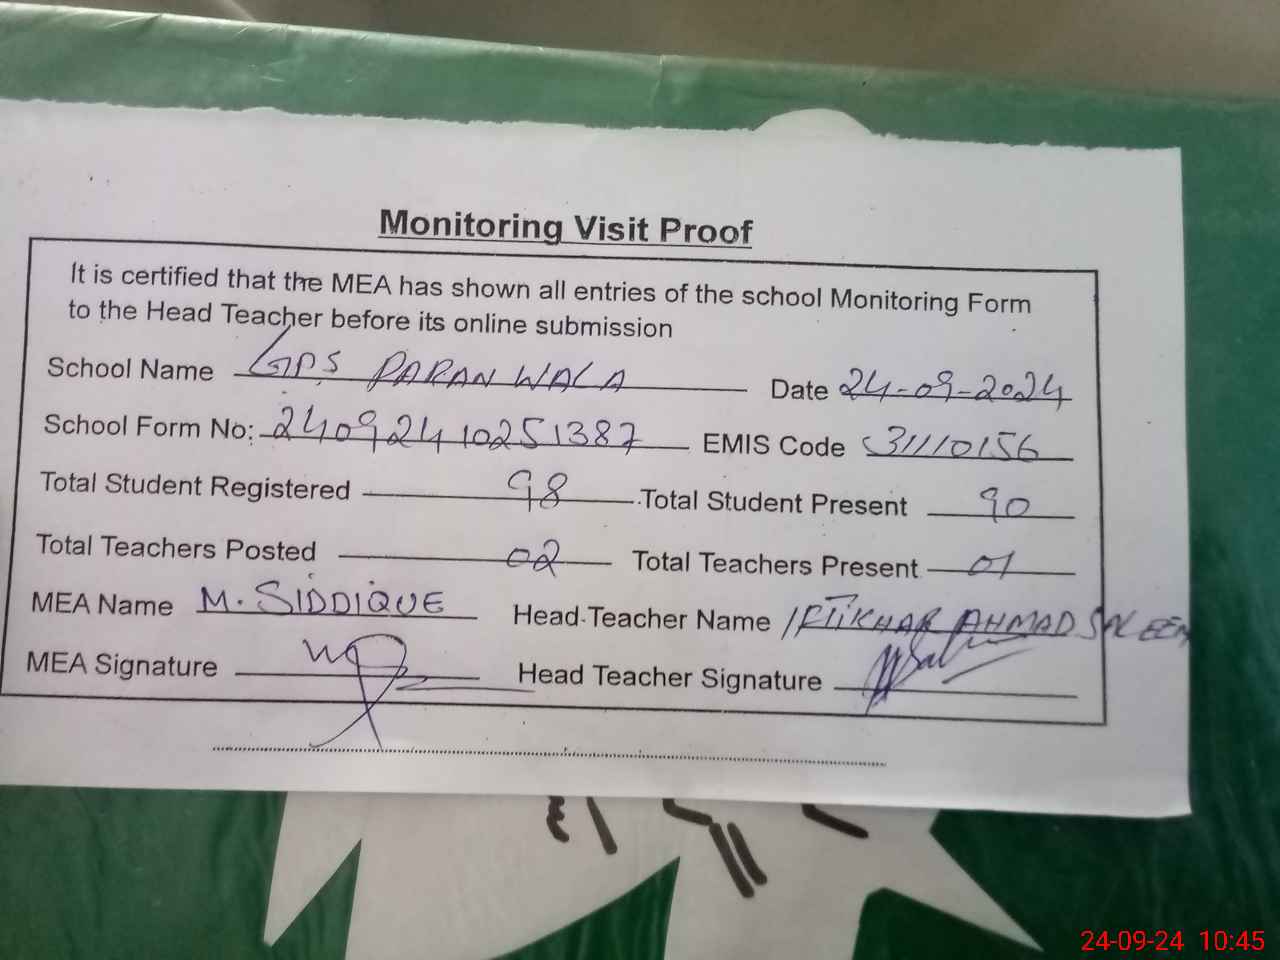 Monitoring Visit Proof
It is certified that the MEA has shown all entries of the school Monitoring Form
to the Head Teacher before its online submission
School Name GPS PARAN WALA Date 24-09-2024
School Form No: 24092410251387 EMIS Code 31110156
Total Student Registered 98 Total Student Present 90
Total Teachers Posted 02 Total Teachers Present 01
MEA Name M. SIDDIQUE Head Teacher Name IFTIKHAR AHMAD SALEEM
MEA Signature Head Teacher Signature
24-09-24 10:45